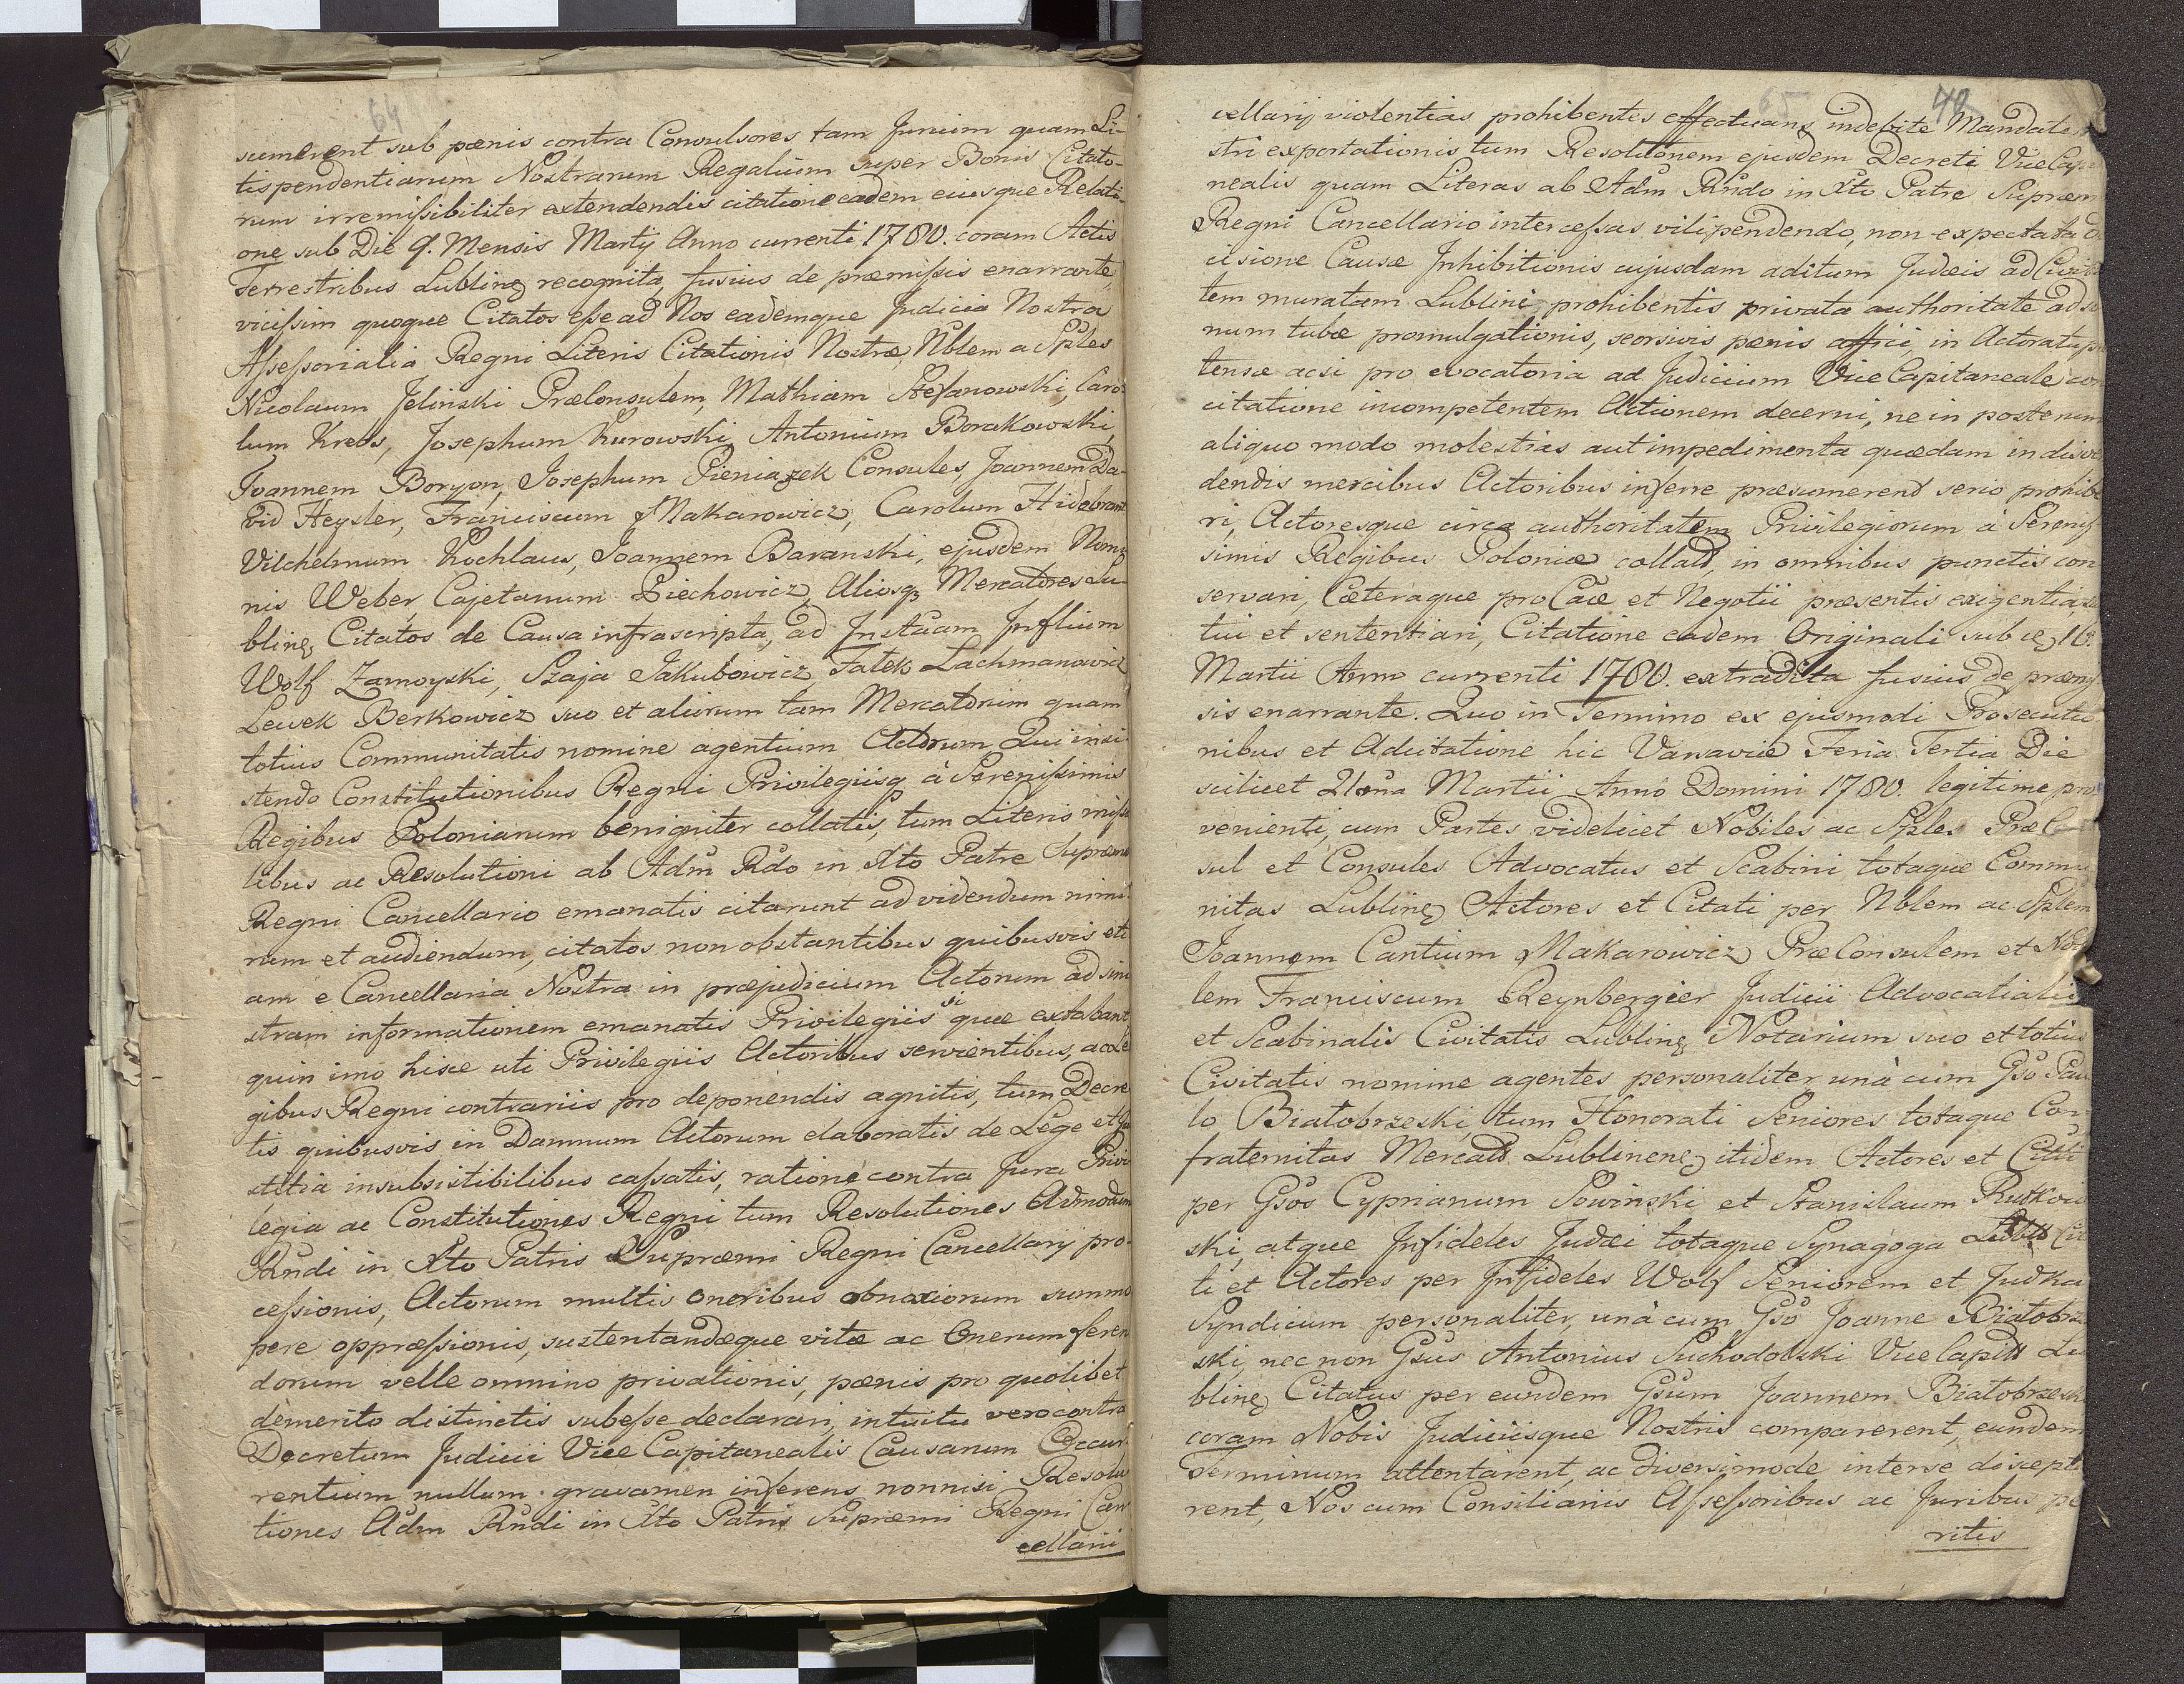 64
sumerent sub pœnis contra Convulsores tam Jurium quam Li-
tispendentiarum Nostrarum Regalium super Bonis Citato-
rum irremissibiliter extendendis citatione eadem eiusque Relati-
one sub Die 9. Mensis Martij Anno currenti 1780. coram Actis
Terrestribus Lublineñ recognita, fusius de præmissis enarrante,
vicissim quoque Citatos esse ad Nos eademque Judicia Nostra
Assessorialia Regni Literis Citationis Nostræ, Nblem a Sples
Nicolaum Jelinski PræConsulem, Mathiam Stefanowski, Caro-
lum Krebs, Josephum Kurowski, Antonium Borakowski,
Joannem Boryon, Josephum Pieniazek Consules, Joannem Da-
vid Heysler, Franciscum Makarowicz, Carolum Hidebrant
Vilchelmum Kochlaus, Joannem Baranski, ejusdem Nomi
nis Weber, Cajetanum Piechowicz, Aliosq3 Mercatores Lu-
blineñ Citatos de Causa infrascripta, ad Instãam Inflium
Wolf Zamoyski, Szaja Jakubowicz, Fatek Lachmanowicz
Lewek Berkowicz suo et aliorum tam Mercatorum quam
totius Communitatis nomine agentium Actorum, Qui insi-
stendo Constitutionibus Regni Privilegiisq à Serenissimis
Regibus Poloniarum benigniter collatis, tum Literis missi
libus ac Resolutioni ab Adm̃ Rdo in Xto Patre Supremo
Regni Cancellario emanatis citarunt ad videndum nimi
rum et audiendum, citatos non obstantibus quibusvis eti
am e Cancellaria Nostra in præjudicium Actorum ad sini
stram informationem emanatis Privilegiis si quæ extabant
quin imo hisce uti Privilegiis Actoribus servientibus, ac Le
gibus Regni contrariis pro deponendis agnitis, tum Decre
tis quibusvis in Damnum Actorum elaboratis de Lege et Ju
stitia insubsistibilibus cassatis, ratione contra Jura Privi
legia ac Constitutiones Regni tum Resolutiones Admodum
Rñdi in Xto Patris Supræmi Regni Cancellarij pro-
cessionis, Actorum multis oneribus obnoxiorum summo
pere oppræssionis, sustentandæque vitæ ac Onerum feren
dorum velle omnino privationis, pœnis pro quolibet
demerito distinctis subesse declarari, intuitu vero contra
Decretum Judicii Vice Capitanealis Causarum Occur
rentium nullum gravamen inferens nonnisi Resolu
tiones Adm Rñdi in Xto Patris Supræmi Regni Can
cellarii
65 40
cellarij violentias prohibentes effectuans indebite Mandate
stri exportationis tum Resolutionem ejusdem Decreti ViceCap
nealis quam Literas ab Adm̃ Rñdo in Xto Patre Suprem
Regni Cancellario intercessas vilipendendo, non expectata de
cisione Causæ Inhibitionis cujusdam aditum Judæis ad Civita
tem muratam Lublineñ prohibentis privata authoritate ad so
num tubæ promulgationis, seorsivis pœnis affici, in Actoratu præ
tensæ acsi pro evocatoria ad Judicium ViceCapitaneale con
citatione incompetentem Actionem decerni, ne in posterum
aliquo modo molestias aut impedimenta quædam in dis ve
dendis mercibus Actoribus inferre præsumerend serio prohibe
ri, Actoresque circa authoritatem Privilegiorum à Serenis
simis Regibus Poloniæ collatt, in omnibus punctis con
servari, Cæteraque pro Caæ et Negotii præsentis exigentia sta
tui et sententiari, Citatione eadem Originali sub ie 16
Martii Anno currenti 1780. extradita fusius de præmis
sis enarrante. Quo in Termino ex ejusmodi Prosecutio
nibus et Adcitatione hic Varsaviæ Feria Tertia Die
scilicet 21ma Martii Anno Domini 1780. legitime pro
venienti, cum Partes videlicet Nobiles ac Sples PræCon
sul et Consules Advocatus et Scabini totaque Commu
nitas Lublineñ Actores et Citati per Nblem ac Splem
Joannem Cantium Makarowicz PræConsulem et Nob
lem Franciscum Reynbergier Judicii Advocatialis
et Scabinalis Civitatis Lublineñ Notarium suo et totius
Civitatis nomine agentes personaliter unà cum Gso Pau
lo Białobrzeski, tum Honorati Seniores totaque Con
fraternitas Mercatt Lublineneñ itidem Actores et Citti
per Gsos Cyprianum Sowinski et Stanislaum Rutkow
ski, atque Infideles Judæi totaque Synagoga Lubls Cit
ti et Actores per Infideles Wolf Seniorem et Judka
Syndicum personaliter, unà cum Gso Joanne Białobrze
ski, nec non Gsus Antonius Suchodolski Vice Capitt Lu
blineñ Citatus per eundem Gsum Joannem Białobrzeski
coram Nobis Judiciisque Nostris comparerent, eundem
Terminum attentarent, ac diversimode inter se discepta
rent, Nos cum Consiliariis Assessoribus ac Juribus pe
ritis